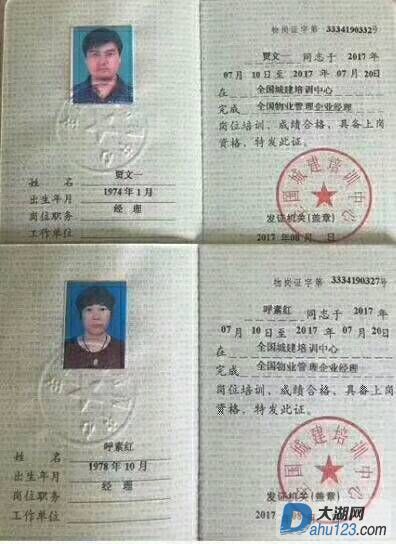 物岗证字第 3334190332号
贾文一 同志于 2017 年
07 月 10 日至 2017 年 07 月 20日
在 全国城建培训中心
完成 全国物业管理企业经理
岗位培训、成绩合格、具备上岗
资格，特发此证。
全国城建培训中心
发证机关(盖章)
2017 年 08月 日
姓 名 贾文一
出生年月 1974 年 1 月
岗位职务 经 理
工作单位
物岗证字第 3334190327号
呼素红 同志于 2017 年
07 月 10 日至 2017 年 07 月 20日
在 全国城建培训中心
完成 全国物业管理企业经理
岗位培训、成绩合格、具备上岗
资格，特发此证。
全国城建培训中心
发证机关(盖章)
2017
姓 名 呼素红
出生年月 1978 年 10 月
岗位职务 经 理
工作单位
大湖网
Dahu123.com